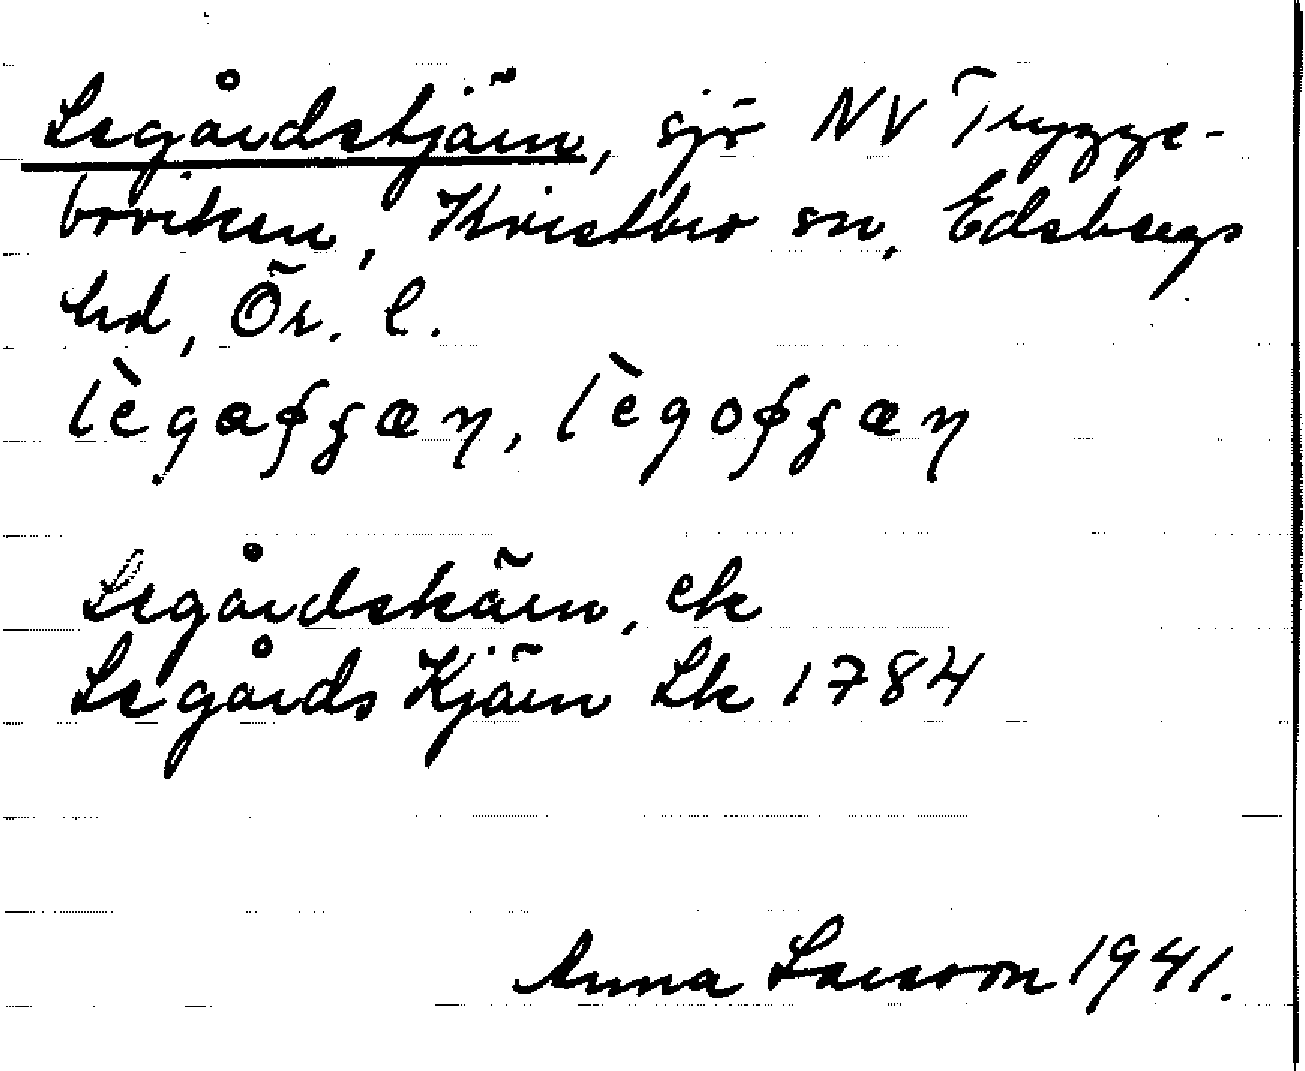 Legårdstjärn, sjö NV Trygge-
boviken, Kvistbro sn, Edsbergs
hd, Ör. l.
Legårdskärn, ek
Legårds Kjärn Lk 1784
Anna Larsson 1941.